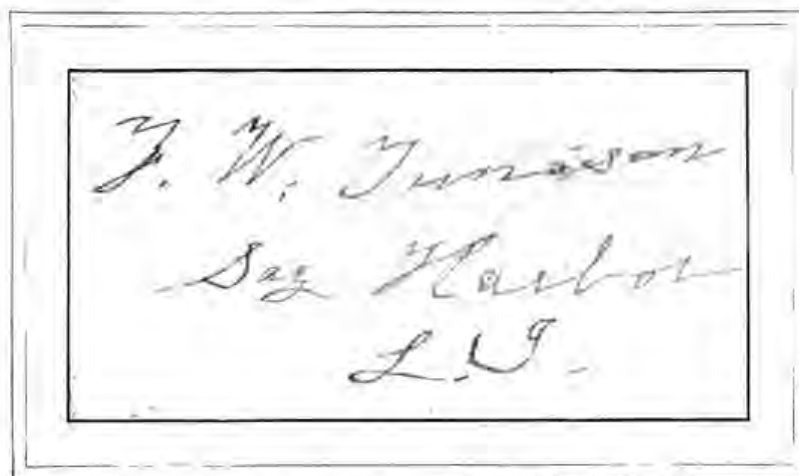 F. W. Tunison
Sag Harbor
L. I.